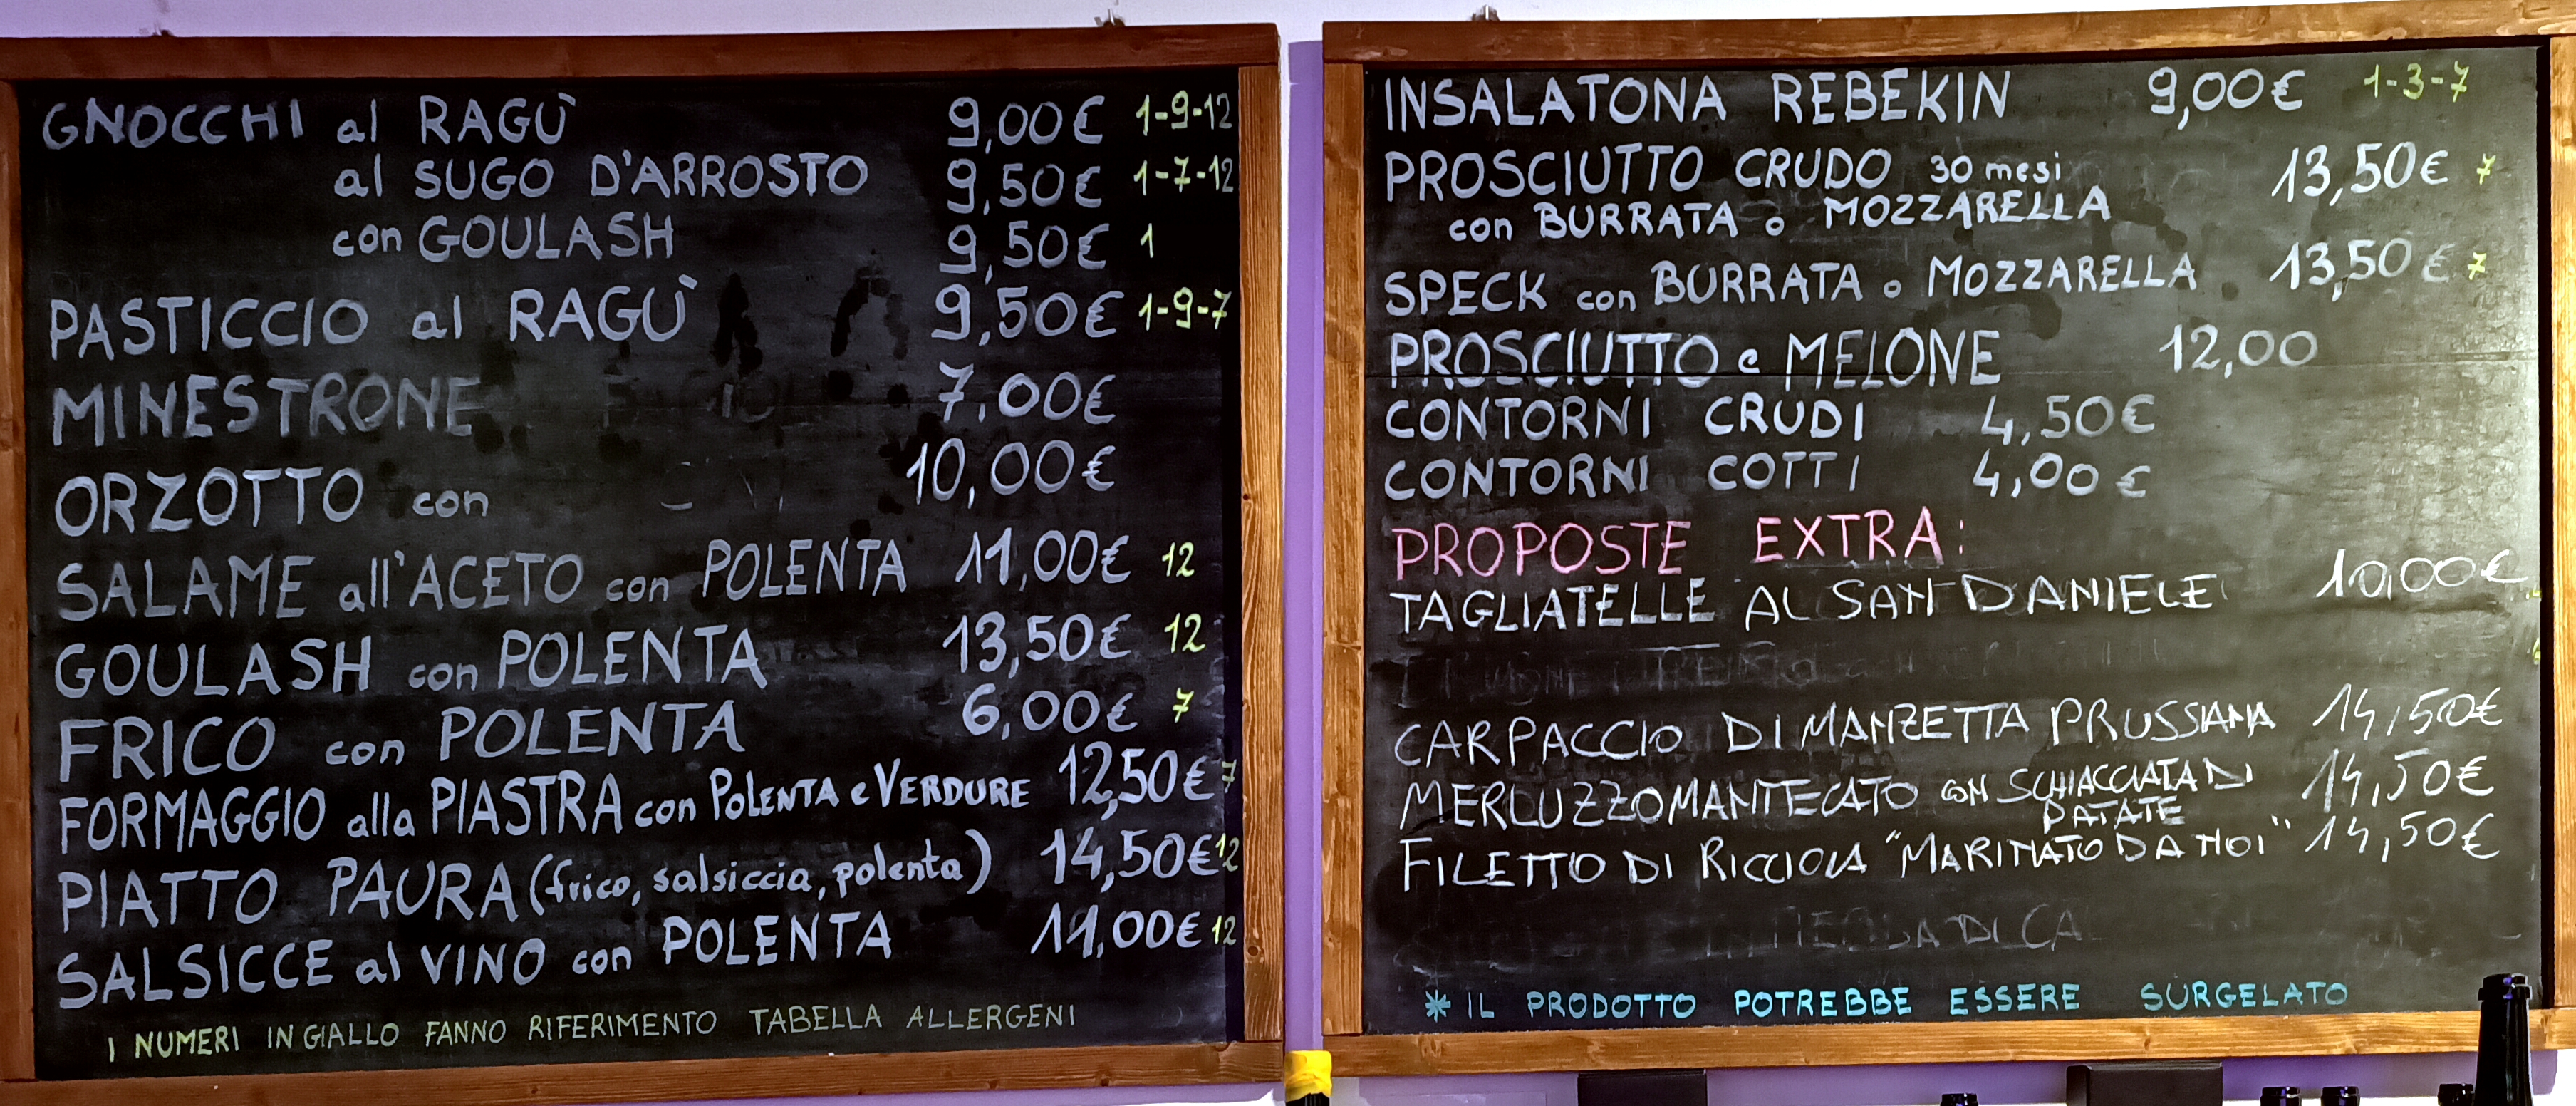 GNOCCHI al RAGÙ 9,00€ 1-9-12
al SUGO D'ARROSTO 9,50€ 1-7-12
con GOULASH 9,50€ 1
PASTICCIO al RAGÙ 9,50€ 1-9-7
MINESTRONE 7,00€
ORZOTTO con 10,00€
SALAME all'ACETO con POLENTA 11,00€ 12
GOULASH con POLENTA 13,50€ 12
FRICO con POLENTA 6,00€ 7
FORMAGGIO alla PIASTRA con POLENTA e VERDURE 12,50€ 7
PIATTO PAURA (frico, salsiccia, polenta) 14,50€ 12
SALSICCE al VINO con POLENTA 11,00€ 12
I NUMERI IN GIALLO FANNO RIFERIMENTO TABELLA ALLERGENI
INSALATONA REBEKIN 9,00€ 1-3-7
PROSCIUTTO CRUDO 30 mesi 13,50€ 7
con BURRATA o MOZZARELLA
SPECK con BURRATA o MOZZARELLA 13,50€ 7
PROSCIUTTO e MELONE 12,00
CONTORNI CRUDI 4,50€
CONTORNI COTTI 4,00€
PROPOSTE EXTRA:
TAGLIATELLE AL SAN DANIELE 10,00€
CARPACCIO DI MANZETTA PRUSSIANA 14,50€
MERLUZZO MANTECATO CON SCHIACCIATA DI 14,50€
PATATE
FILETTO DI RICCIOLA "MARINATO DA NOI" 14,50€
* IL PRODOTTO POTREBBE ESSERE SURGELATO